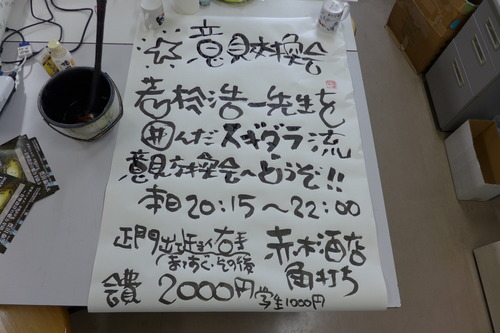 ☆意見交換会
若杉浩一先生を
囲んだスギダラ流
意見交換会へどうぞ!!
本日20:15〜22:00
正門出てすぐ右手
まっすぐ、その後
赤木酒店
角打ち
会費 2000円 学生1000円